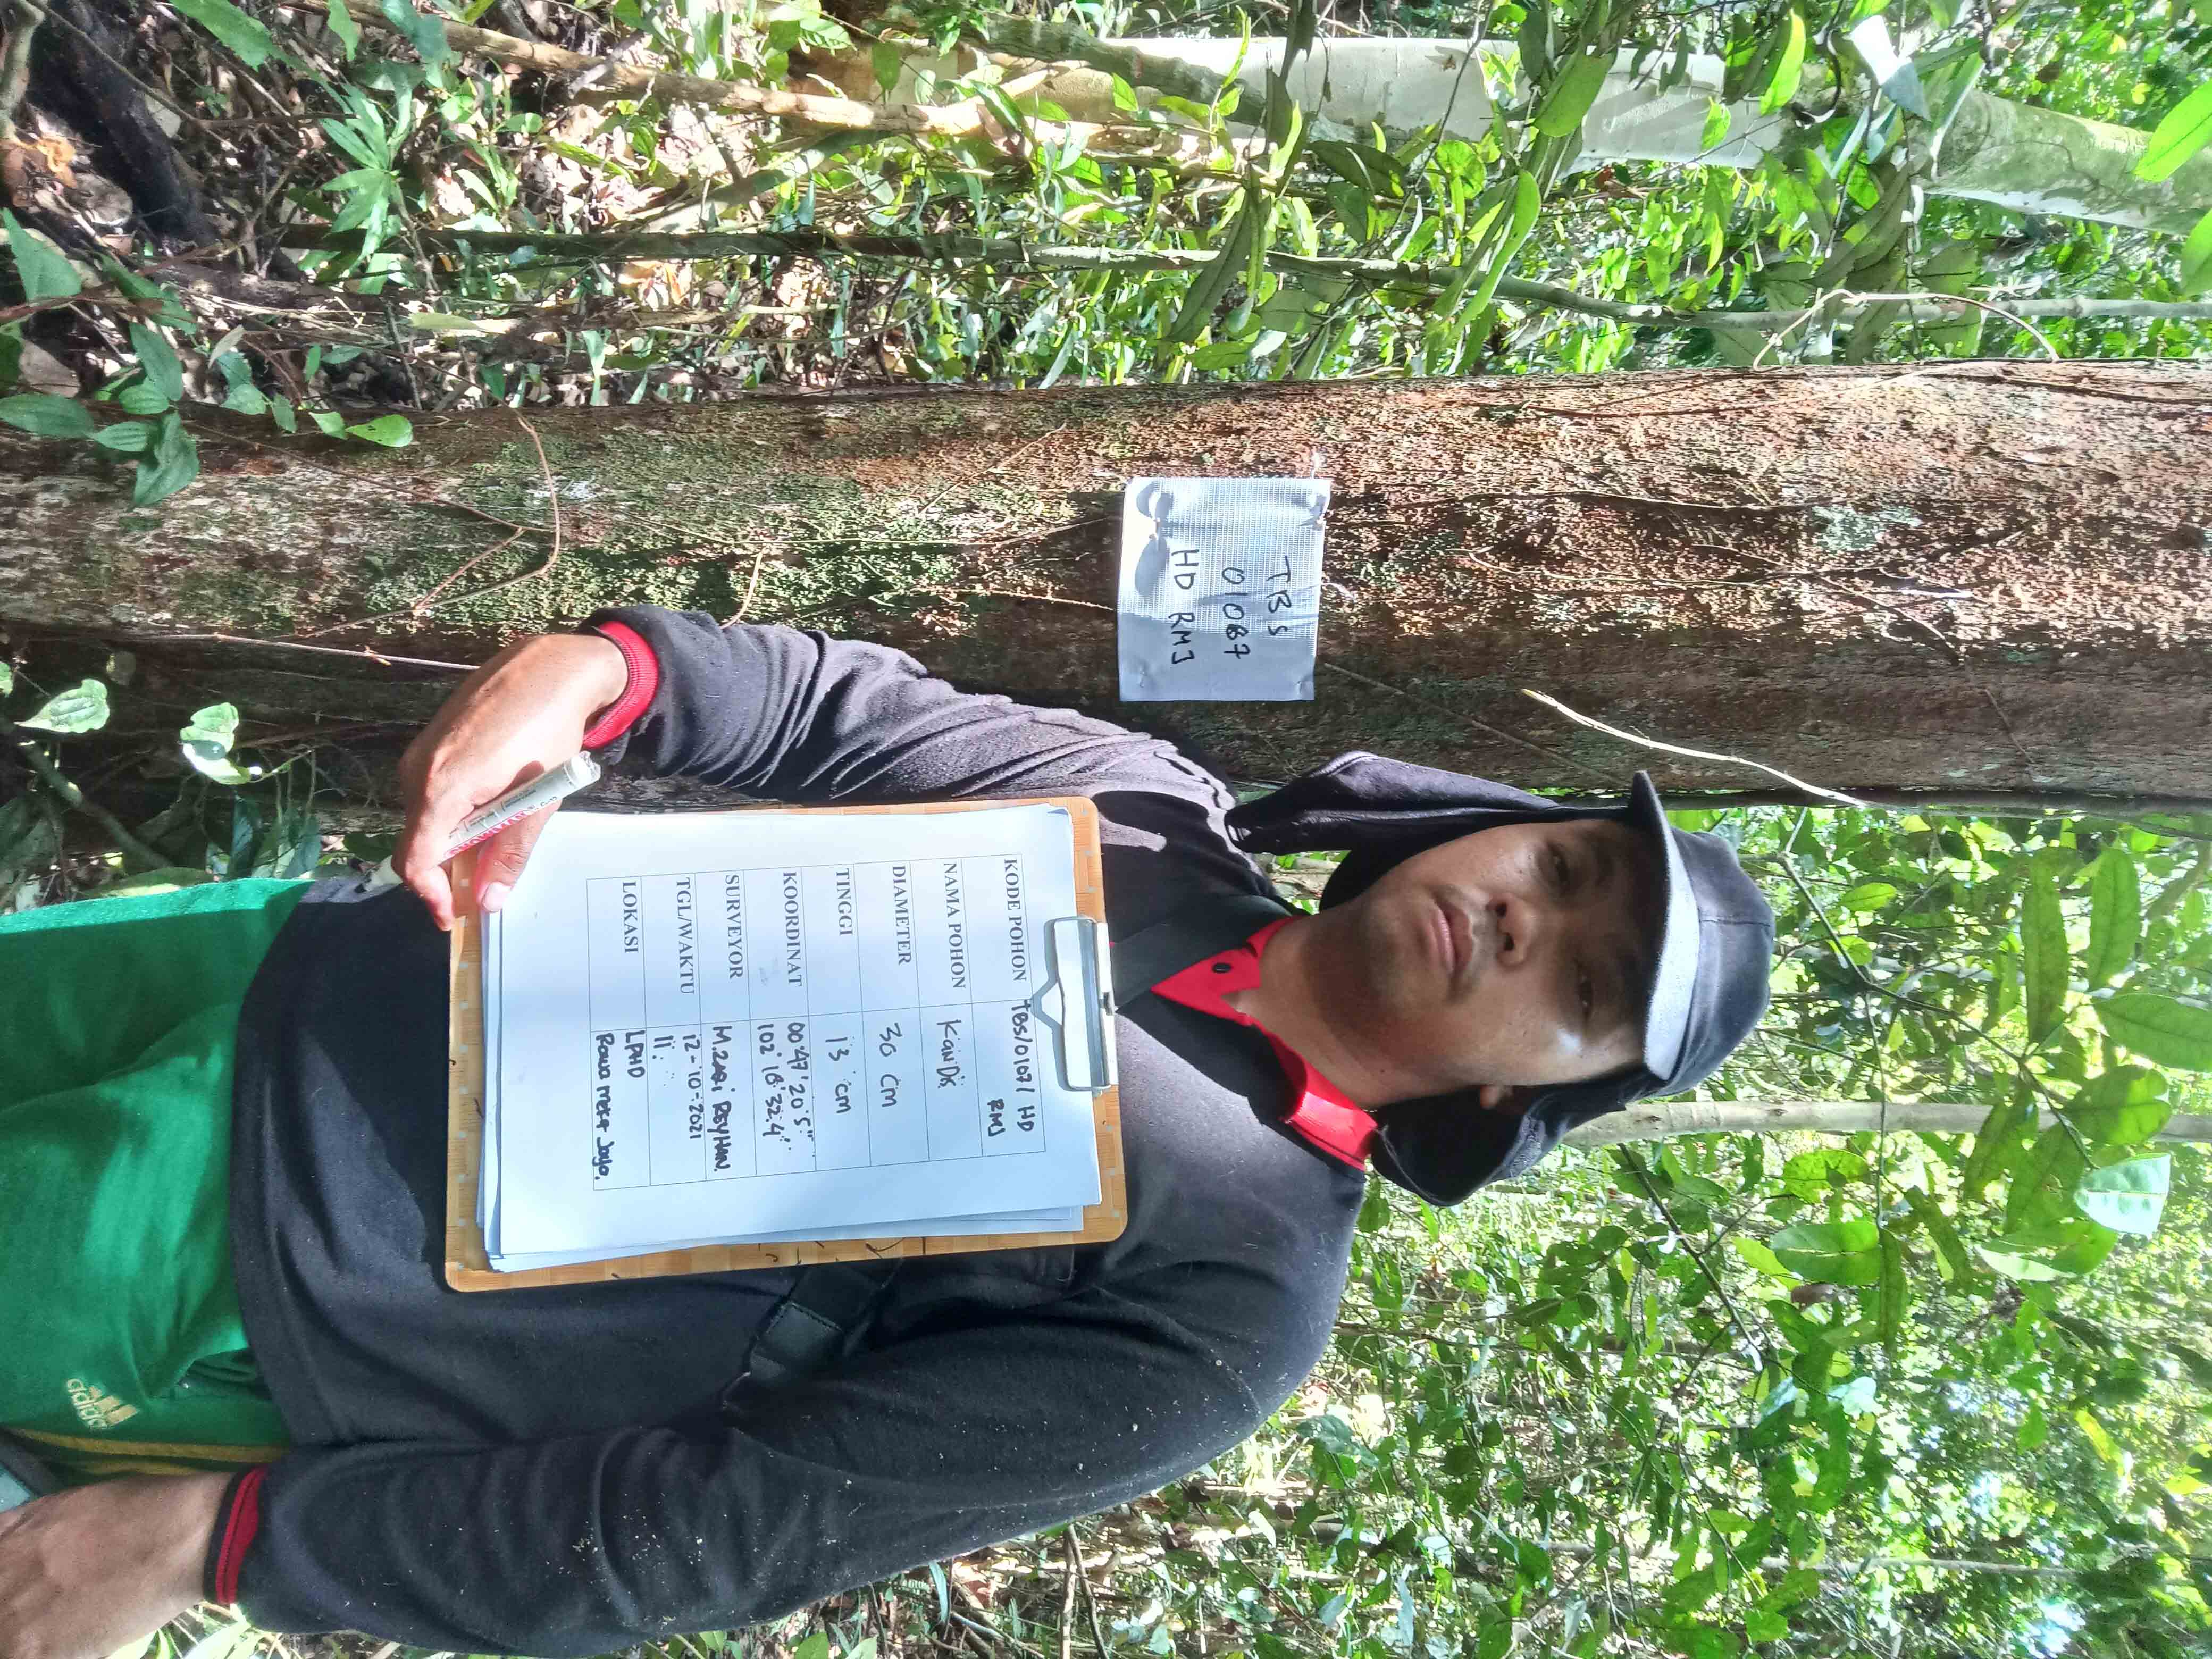 TBS
01087
HD RMJ
KODE POHON TBS/0107/ HD
RMJ
NAMA POHON KANDIS
DIAMETER 30 cm
TINGGI 13 cm
KOORDINAT 00°47'20.5"
102°18'32.4"
SURVEYOR M.ZAQI REYHAN.
TGL/WAKTU 12-10-2021
11.
LOKASI LPHD
Rawa Mekar Jaya.
adidas